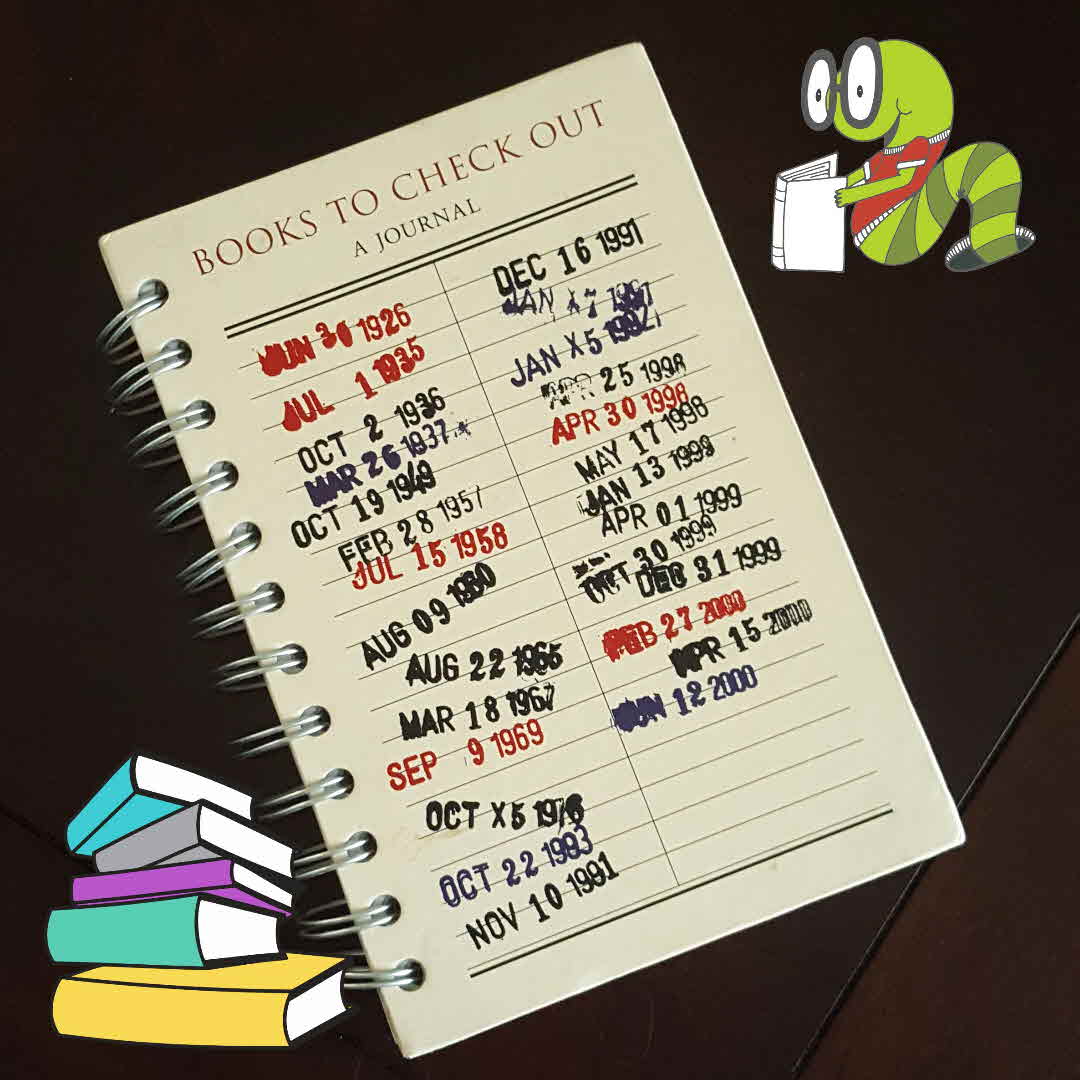 BOOKS TO CHECK OUT
A JOURNAL
JUN 30 1926
JUL 1 1935
OCT 2 1936
MAR 26 1937
OCT 19 1949
FEB 28 1957
JUL 15 1958
AUG 09
AUG 22 1965
MAR 18 1967
SEP 9 1969
OCT X5 1976
OCT 22
NOV 10 1991
DEC 16 1991
JAN X7
JAN X5
APR 25 1998
APR 30 1998
MAY 17 1998
JAN 13 1999
APR 01 1999
OCT 30 1999
DEC 31 1999
FEB 27 2000
APR 15 2000
JUN 12 2000